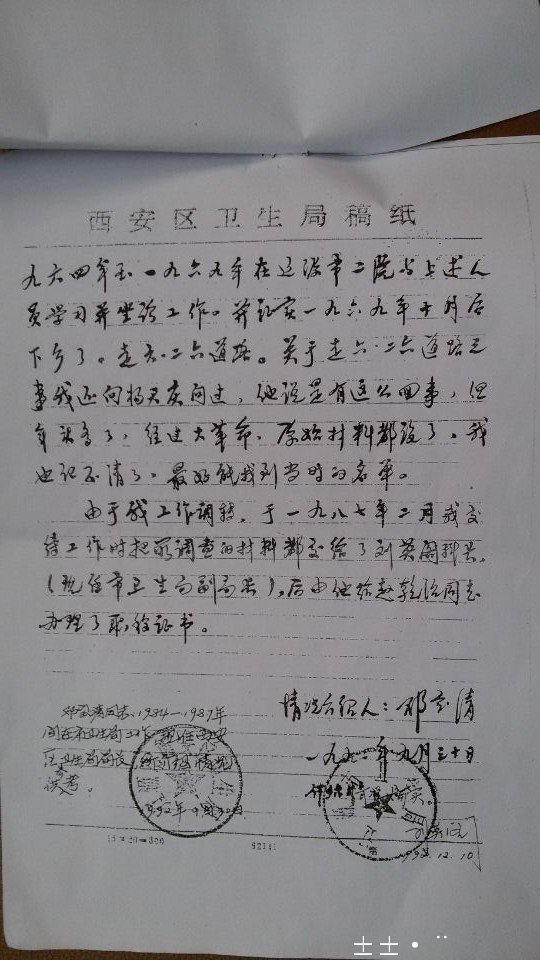 西安区卫生局稿纸
九六四年至一九六九年在辽源市二院与上述人
员学习并坐诊工作。并证实一九六九年十月后
下乡了。走六.二六道路。关于走六.二六道路之
事我还向杨天庆问过，他说是有这么回事，但
年头多了，经过大革命，原始材料都没了。我
也记不清了。最好能找到当时的名单。
由于我工作调转，于一九八七年二月我交
待工作时把所调查的材料都交给了刘英阁科长。
（现任市卫生局副局长），后由他给赵乾治同志
办理了职称证书。
情况介绍人：邓宝清
一九九二年九月三十日
同志1984—1987年
间在社卫生局工作
卫生局
供参考。
1992年9月30日
15×20=300
1992.12.10
士士·¨